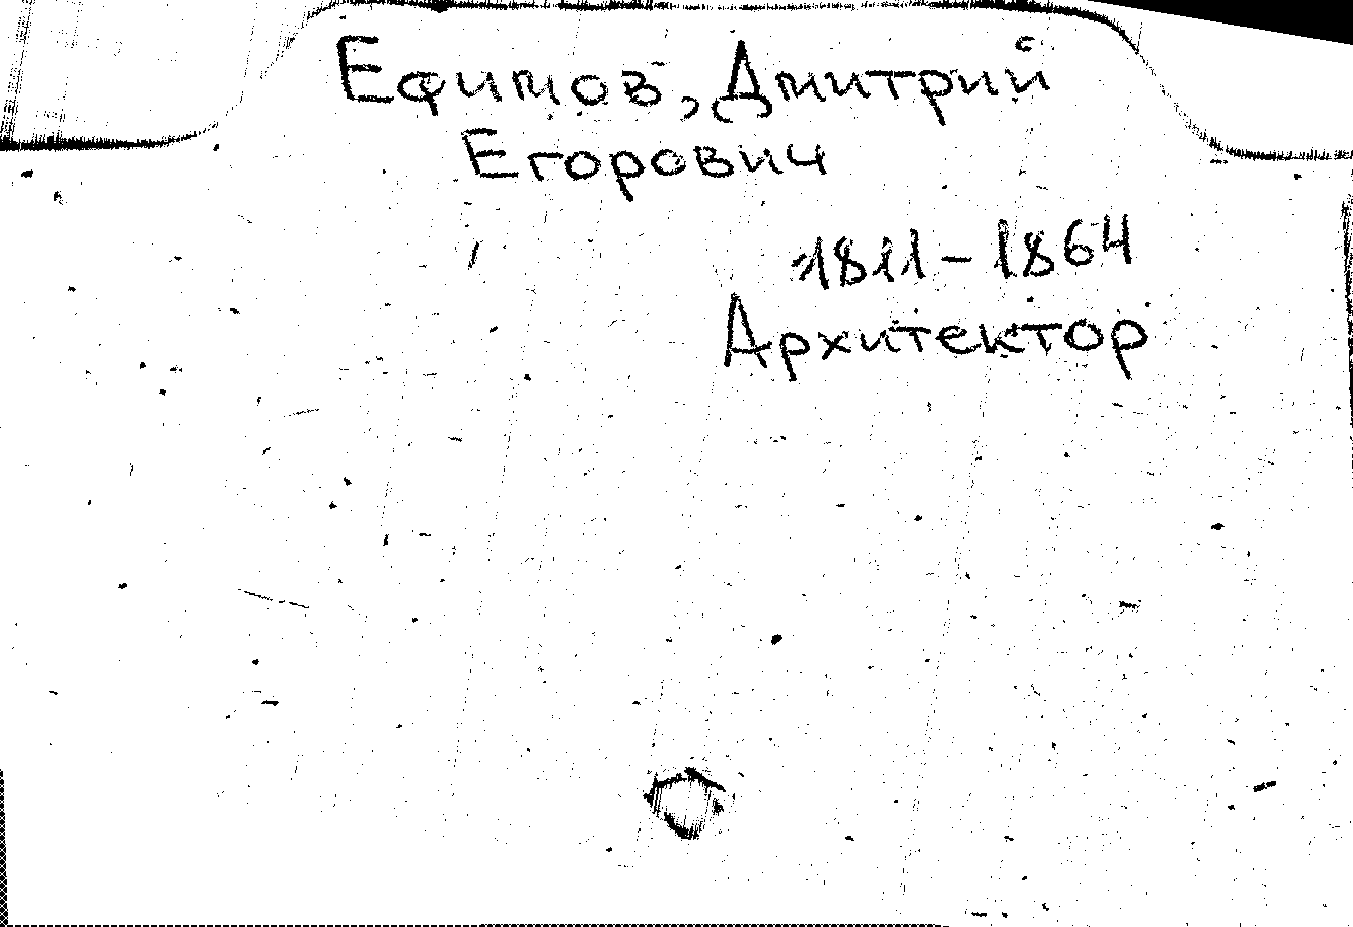 Ефимов, Дмитрий
Егорович
1811-1864
Архитектор